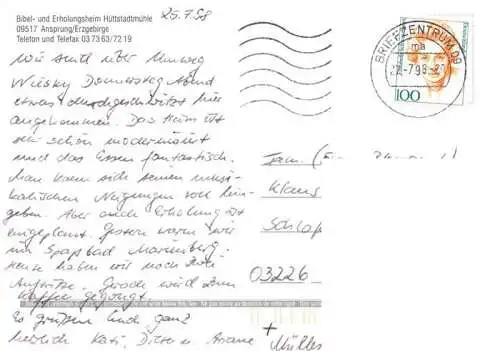 Bibel- und Erholungsheim Hüttstadtmühle
09517 Ansprung/Erzgebirge
Telefon und Telefax 03 73 63/72 19
25.7.98
Wir sind über Umweg
Donnerstag Abend
etwas durchgeschwitzt hier
angekommen. Das Heim ist
sehr schön modernisiert
und das Essen fantastisch.
Man kann sich seinen musi-
kalischen Neigungen voll hin-
geben. Aber auch Erholung ist
eingeplant. Gestern waren wir
im Spaßbad Marienberg.
Heute haben wir noch
Auftritte. Gerade wird zum
Kaffee
Es grüßen Euch ganz
herzlich Kati,
+
BRIEFZENTRUM 09
ma
-7.98
100
Fam.
Klaus
03226